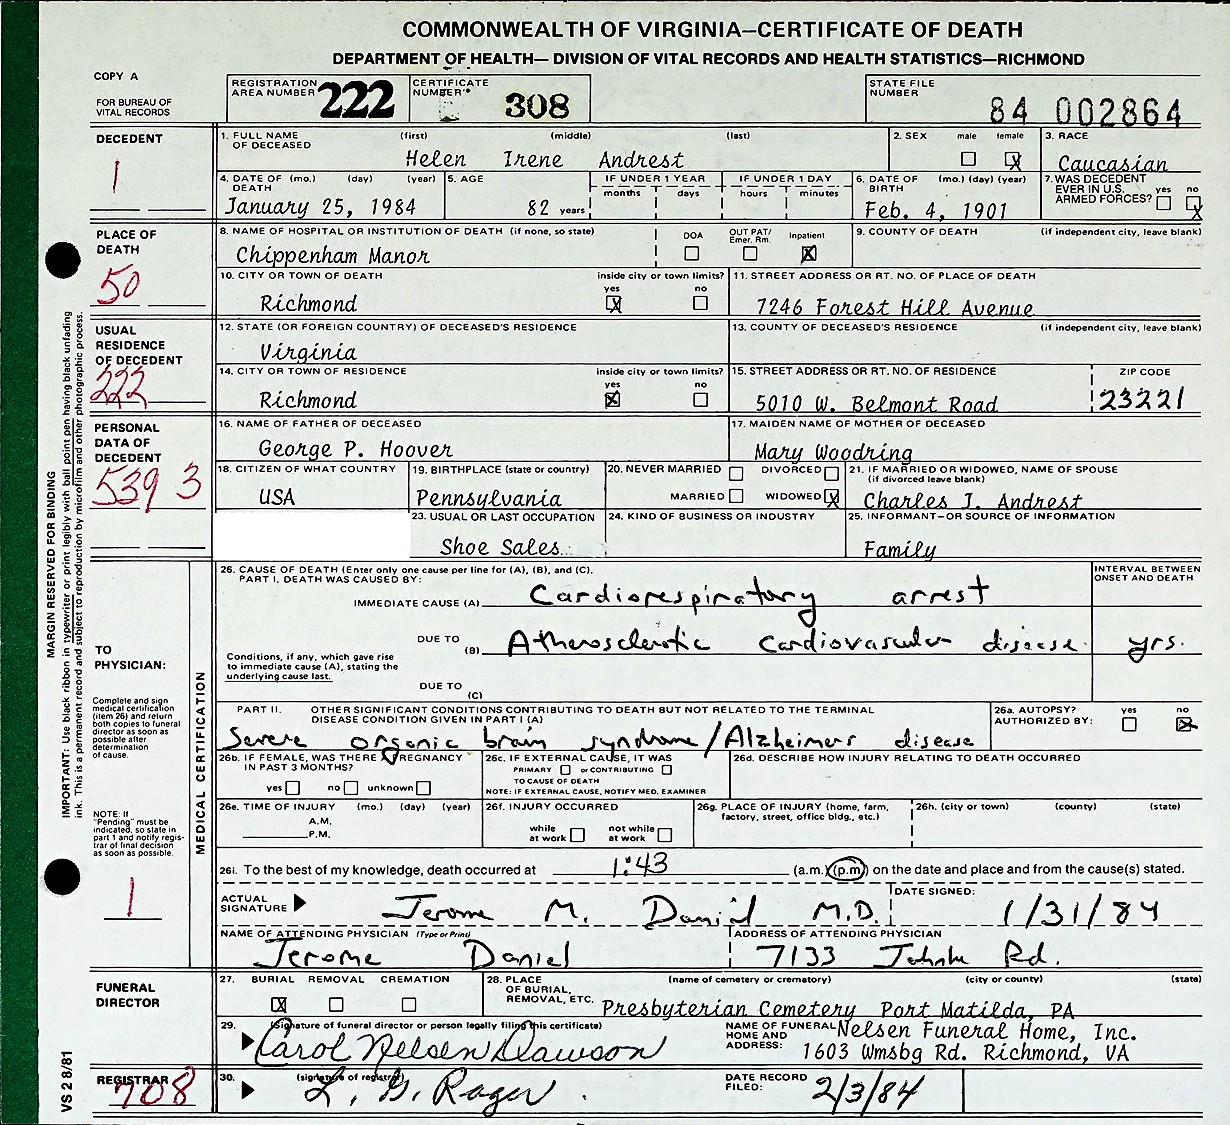 COMMONWEALTH OF VIRGINIA—CERTIFICATE OF DEATH
DEPARTMENT OF HEALTH— DIVISION OF VITAL RECORDS AND HEALTH STATISTICS—RICHMOND
COPY A
FOR BUREAU OF
VITAL RECORDS
REGISTRATION
AREA NUMBER 222
CERTIFICATE
NUMBER 308
STATE FILE
NUMBER
84 002864
DECEDENT
1
1. FULL NAME (first) (middle) (last)
OF DECEASED
Helen Irene Andrest
2. SEX male female X
3. RACE
Caucasian
4. DATE OF (mo.) (day) (year)
DEATH
January 25, 1984
5. AGE
82 years
IF UNDER 1 YEAR
months days
IF UNDER 1 DAY
hours minutes
6. DATE OF (mo.) (day) (year)
BIRTH
Feb. 4, 1901
7. WAS DECEDENT
EVER IN U.S. yes no
ARMED FORCES? X
PLACE OF
DEATH
50
8. NAME OF HOSPITAL OR INSTITUTION OF DEATH (if none, so state)
Chippenham Manor
DOA
OUT PAT/
Emer. Rm.
Inpatient X
9. COUNTY OF DEATH (if independent city, leave blank)
10. CITY OR TOWN OF DEATH
Richmond
inside city or town limits?
yes no
X
11. STREET ADDRESS OR RT. NO. OF PLACE OF DEATH
7246 Forest Hill Avenue
USUAL
RESIDENCE
OF DECEDENT
222
12. STATE (OR FOREIGN COUNTRY) OF DECEASED'S RESIDENCE
Virginia
13. COUNTY OF DECEASED'S RESIDENCE (if independent city, leave blank)
14. CITY OR TOWN OF RESIDENCE
Richmond
inside city or town limits?
yes no
X
15. STREET ADDRESS OR RT. NO. OF RESIDENCE
5010 W. Belmont Road
ZIP CODE
23221
PERSONAL
DATA OF
DECEDENT
539 3
16. NAME OF FATHER OF DECEASED
George P. Hoover
17. MAIDEN NAME OF MOTHER OF DECEASED
Mary Woodring
18. CITIZEN OF WHAT COUNTRY
USA
19. BIRTHPLACE (state or country)
Pennsylvania
20. NEVER MARRIED DIVORCED
MARRIED WIDOWED X
21. IF MARRIED OR WIDOWED, NAME OF SPOUSE
(if divorced leave blank)
Charles J. Andrest
23. USUAL OR LAST OCCUPATION
Shoe Sales
24. KIND OF BUSINESS OR INDUSTRY
25. INFORMANT—OR SOURCE OF INFORMATION
Family
MARGIN RESERVED FOR BINDING
IMPORTANT: Use black ribbon in typewriter or print legibly with ball point pen having black unfading
ink. This is a permanent record and subject to reproduction by microfilm and other photographic process.
TO
PHYSICIAN:
Complete and sign
medical certification
(item 26) and return
both copies to funeral
director as soon as
possible after
determination
of cause.
NOTE: If
"Pending" must be
indicated, so state in
part 1 and notify regis-
trar of final decision
as soon as possible.
1
MEDICAL CERTIFICATION
26. CAUSE OF DEATH (Enter only one cause per line for (A), (B), and (C).
PART I. DEATH WAS CAUSED BY:
INTERVAL BETWEEN
ONSET AND DEATH
IMMEDIATE CAUSE (A) Cardiorespiratory arrest
DUE TO
(B) Atherosclerotic cardiovascular disease yrs.
Conditions, if any, which gave rise
to immediate cause (A), stating the
underlying cause last.
DUE TO
(C)
PART II. OTHER SIGNIFICANT CONDITIONS CONTRIBUTING TO DEATH BUT NOT RELATED TO THE TERMINAL
DISEASE CONDITION GIVEN IN PART I (A)
Severe organic brain syndrome/Alzheimers disease
26a. AUTOPSY? yes no
AUTHORIZED BY: X
26b. IF FEMALE, WAS THERE A PREGNANCY
IN PAST 3 MONTHS?
yes no unknown
26c. IF EXTERNAL CAUSE, IT WAS
PRIMARY or CONTRIBUTING
TO CAUSE OF DEATH
NOTE: IF EXTERNAL CAUSE, NOTIFY MED. EXAMINER
26d. DESCRIBE HOW INJURY RELATING TO DEATH OCCURRED
26e. TIME OF INJURY (mo.) (day) (year)
A.M.
P.M.
26f. INJURY OCCURRED
while not while
at work at work
26g. PLACE OF INJURY (home, farm,
factory, street, office bldg., etc.)
26h. (city or town) (county) (state)
26i. To the best of my knowledge, death occurred at 1:43 (a.m.) (p.m) on the date and place and from the cause(s) stated.
ACTUAL
SIGNATURE
Jerome M. Daniel M.D.
DATE SIGNED:
1/31/84
NAME OF ATTENDING PHYSICIAN (Type or Print)
Jerome Daniel
ADDRESS OF ATTENDING PHYSICIAN
7133 Jahnke Rd.
FUNERAL
DIRECTOR
27. BURIAL REMOVAL CREMATION
X
28. PLACE (name of cemetery or crematory) (city or county) (state)
OF BURIAL,
REMOVAL, ETC.
Presbyterian Cemetery Port Matilda, PA
29. (signature of funeral director or person legally filing this certificate)
Carol Nelsen Dawson
NAME OF FUNERAL
HOME AND
ADDRESS:
Nelsen Funeral Home, Inc.
1603 Wmsbg Rd. Richmond, VA
REGISTRAR
708
30. (signature of registrar)
L. G. Rager
DATE RECORD
FILED:
2/3/84
VS 2 8/81